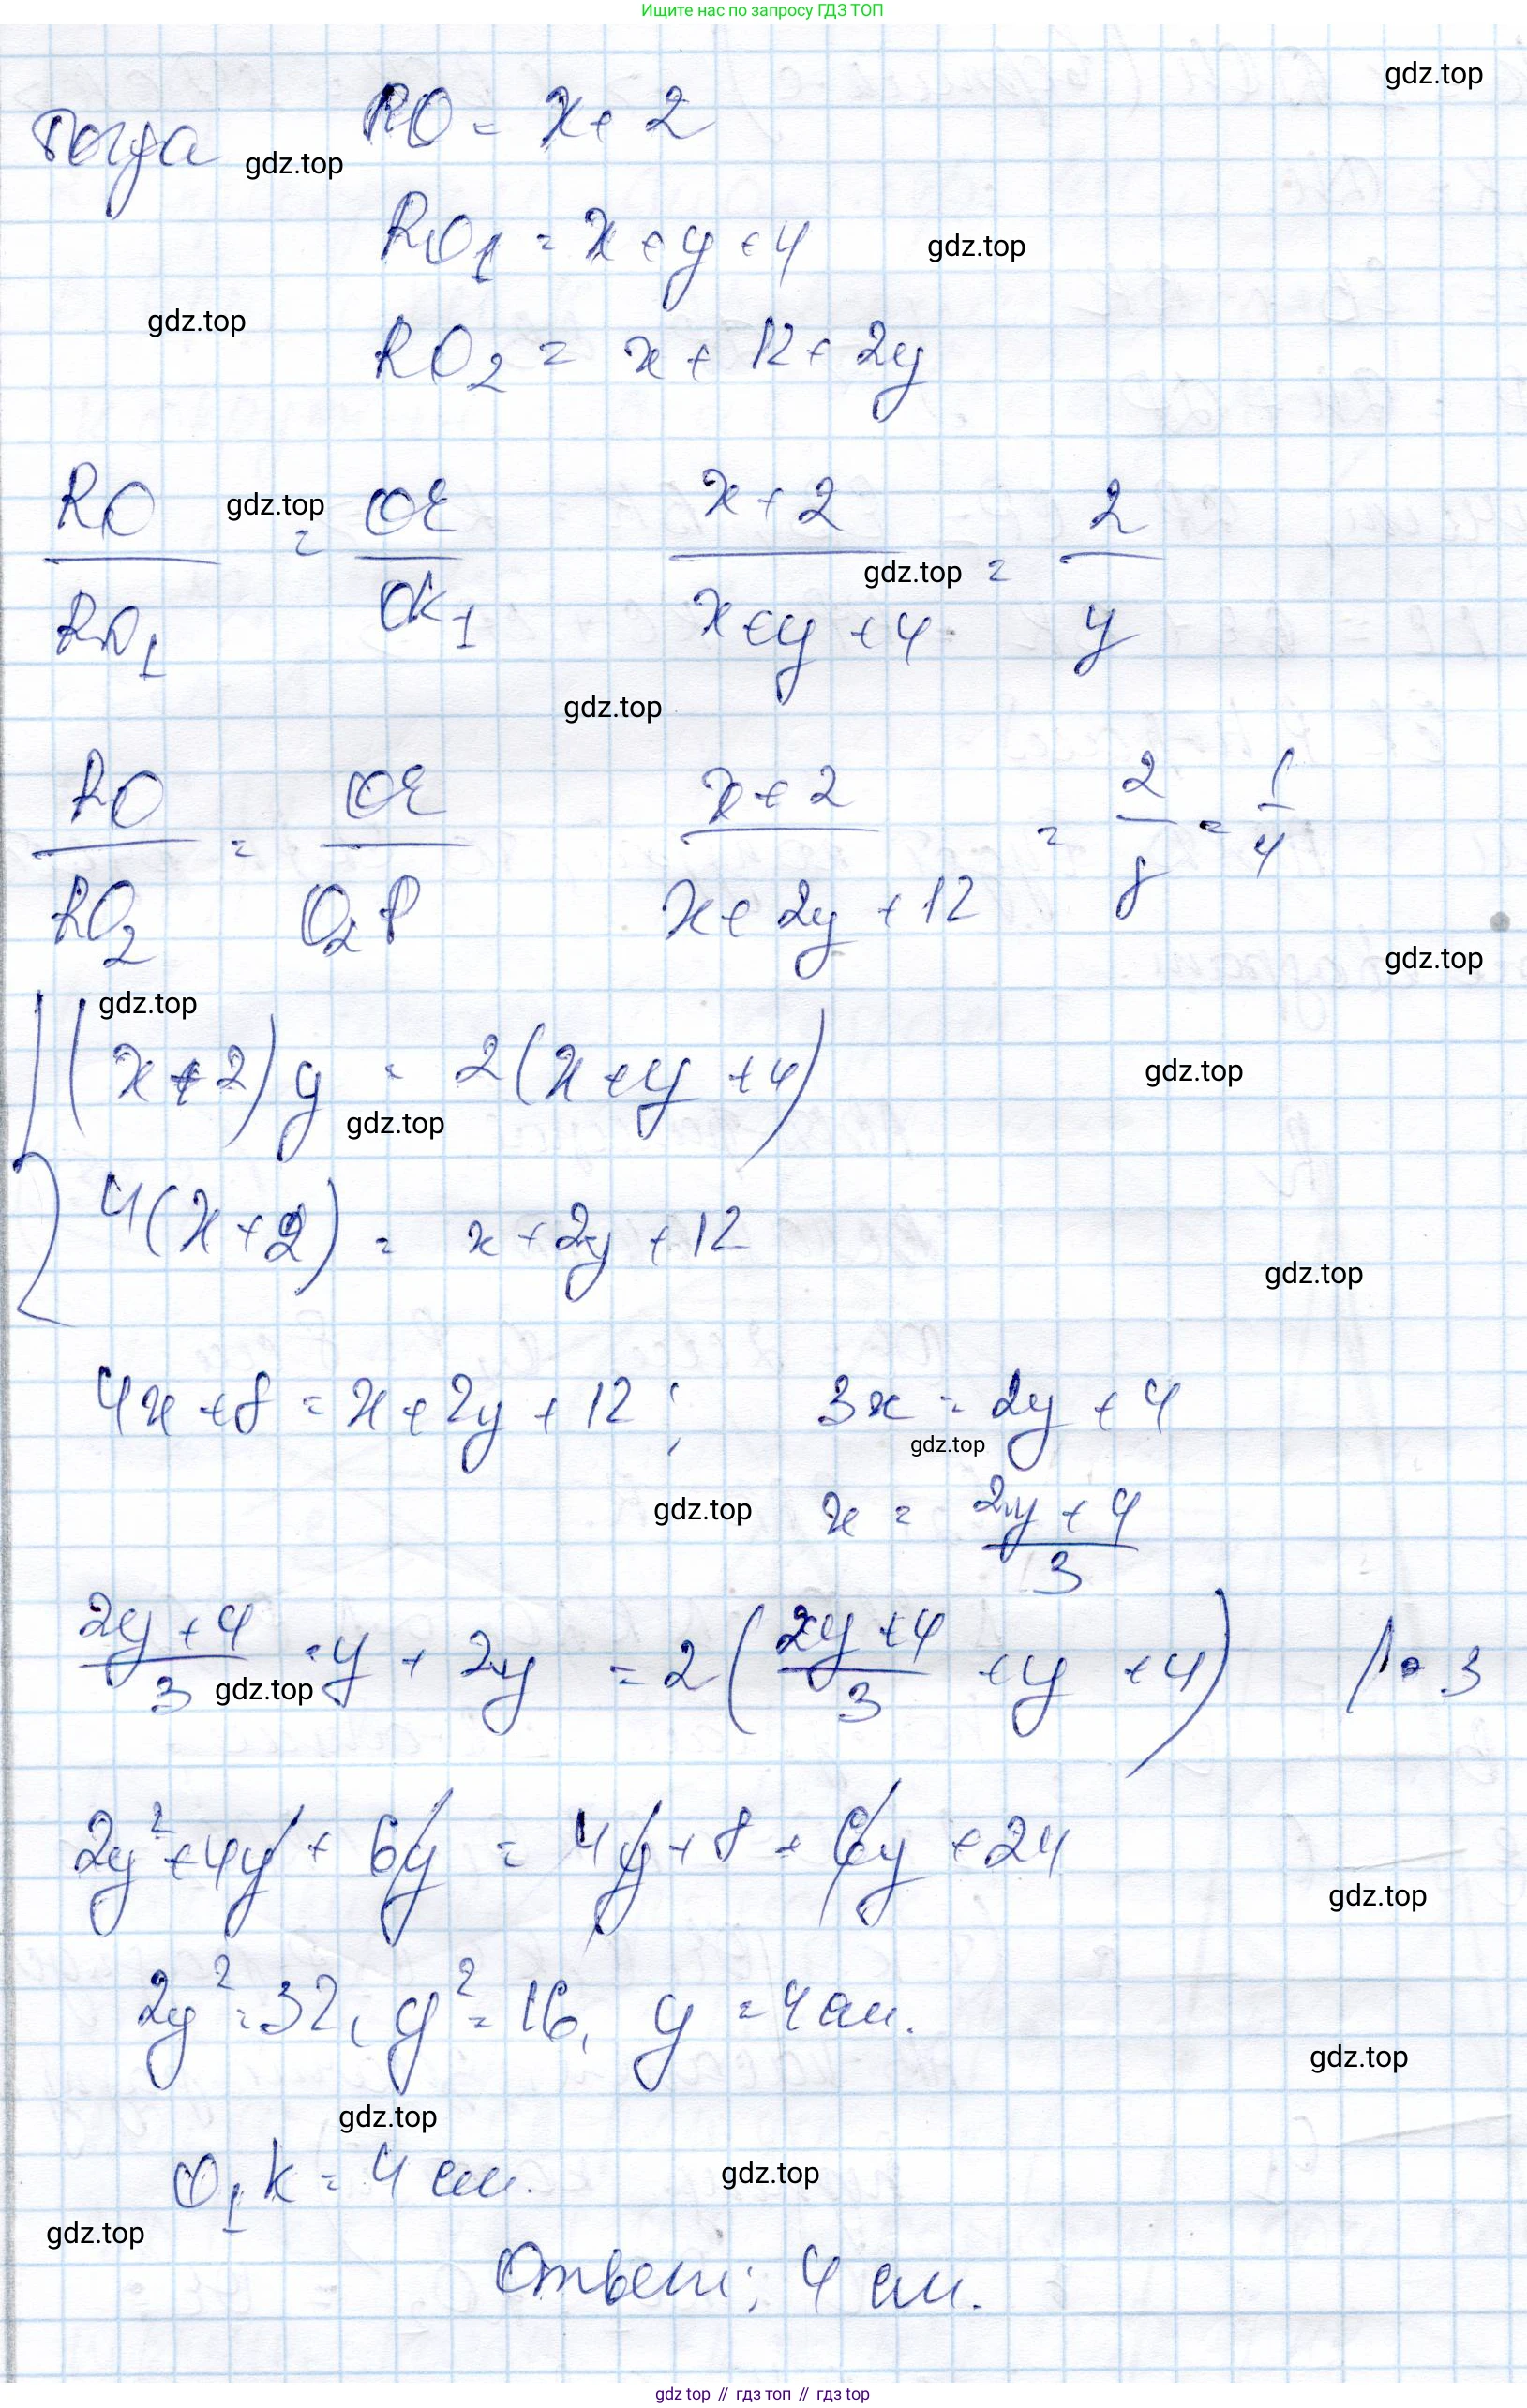 Ищите нас по запросу ГДЗ ТОП
gdz.top
Тогда RO = x + 2
gdz.top
RO₁ = x + y + 4
gdz.top
gdz.top
RO₂ = x + 12 + 2y
RO/RO₁ = OE/OK₁ (x + 2)/(x + y + 4) = 2/y
gdz.top
gdz.top
gdz.top
RO/RO₂ = OE/O₂P (x + 2)/(x + 2y + 12) = 2/8 = 1/4
gdz.top
gdz.top
{ (x + 2) y = 2(x + y + 4)
gdz.top
gdz.top
4(x + 2) = x + 2y + 12
gdz.top
4x + 8 = x + 2y + 12; 3x = 2y + 4
gdz.top
gdz.top
x = (2y + 4)/3
(2y + 4)/3 · y + 2y = 2((2y + 4)/3 + y + 4) /· 3
gdz.top
2y² + 4y + 6y = 4y + 8 + 6y + 24
gdz.top
2y² = 32, y² = 16, y = 4 см.
gdz.top
gdz.top
O₁K = 4 см.
gdz.top
gdz.top
Ответ: 4 см.
gdz top // гдз топ // гдз top